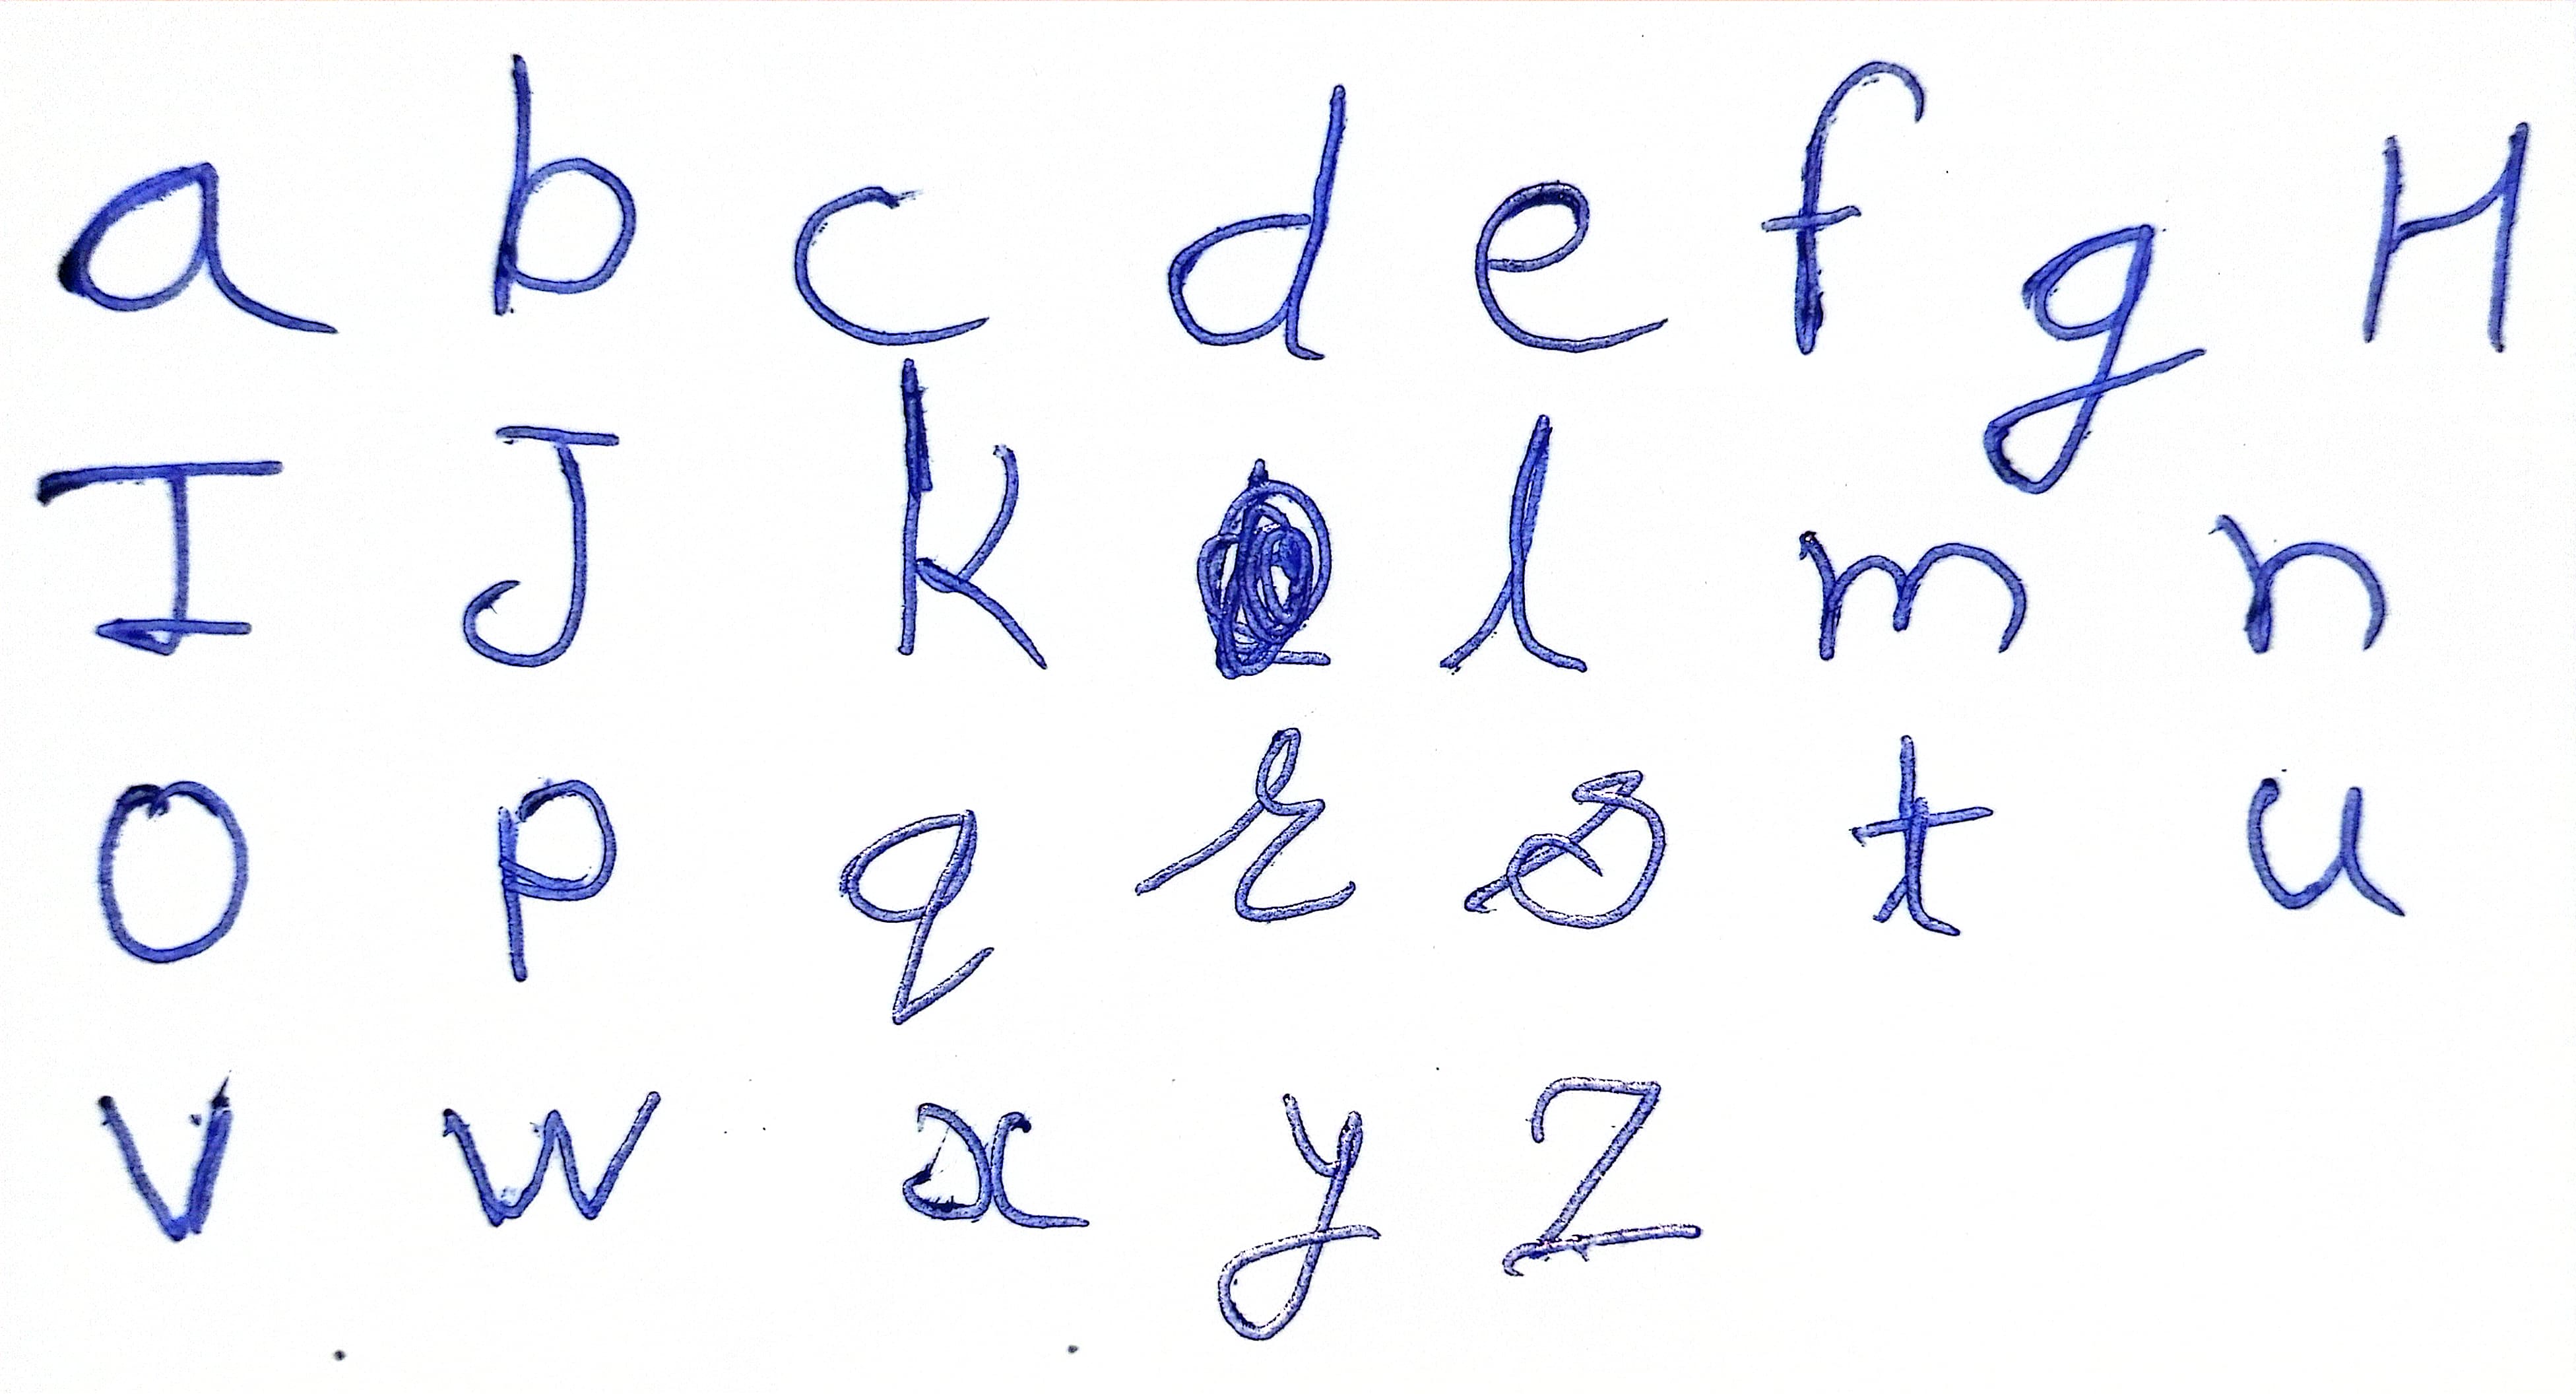 a b c d e f g H
I J k l m n
O p q r s t u
v w x y Z